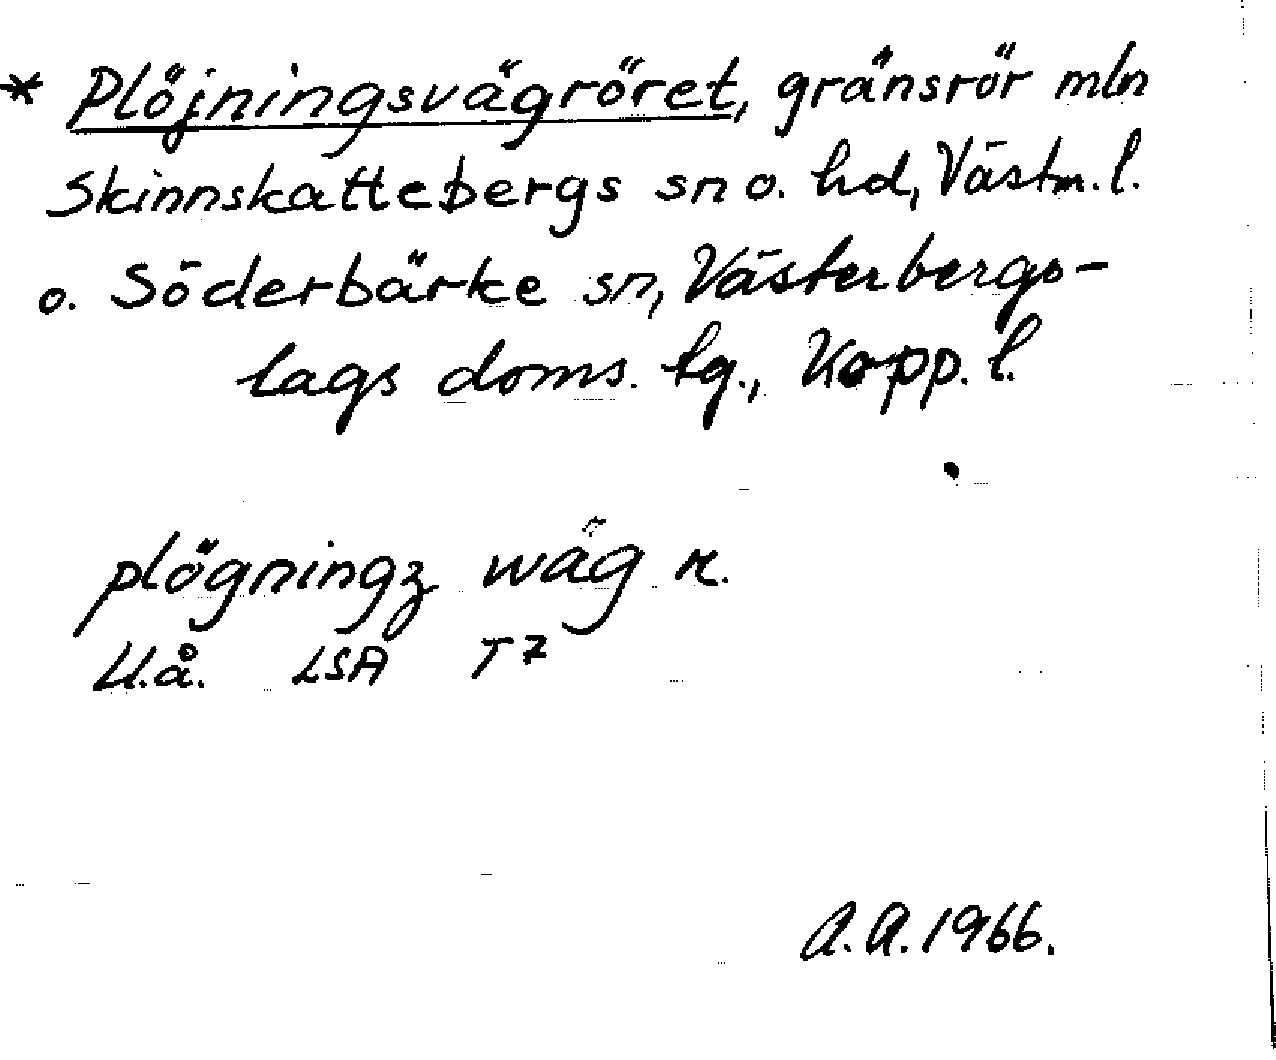 * Plöjningsvägröret, gränsrör mln
Skinnskattebergs sn o. hd, Västm. l.
o. Söderbärke sn, Västerbergs-
lags doms. tg., Kopp. l.
plögningz wäg r.
U.å. LSA T 7
A.A. 1966.